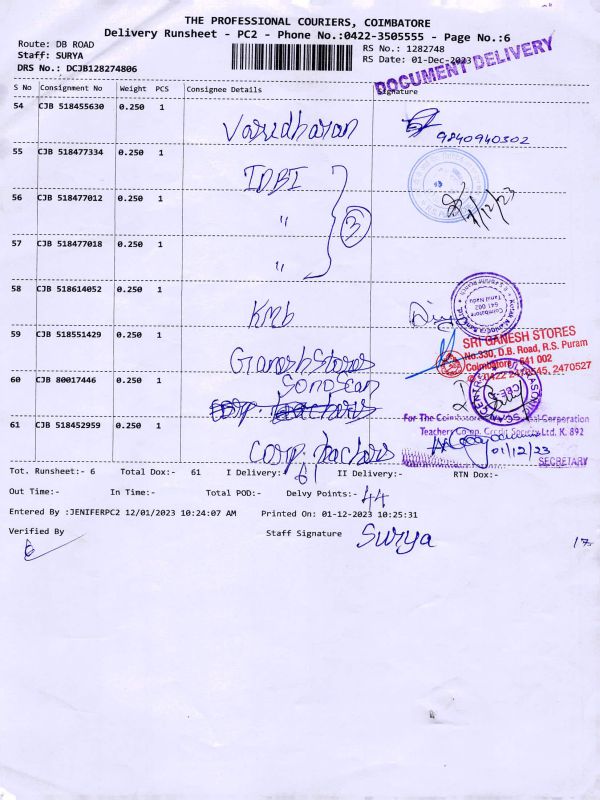 THE PROFESSIONAL COURIERS, COIMBATORE
Delivery Runsheet - PC2 - Phone No.:0422-3505555 - Page No.:6
Route: DB ROAD
Staff: SURYA
DRS No.: DCJB128274806
RS No.: 1282748
RS Date: 01-Dec-2023
DOCUMENT DELIVERY
S No Consignment No Weight PCS Consignee Details Signature
54 CJB 518455630 0.250 1 Varidharan 9840940302
55 CJB 518477334 0.250 1 IDBI
56 CJB 518477012 0.250 1 " 3 1/12/23
57 CJB 518477018 0.250 1 "
58 CJB 518614052 0.250 1 KMB
Coimbatore
641 002
Tamil Nadu
59 CJB 518551429 0.250 1 Ganesh Stores
SRI GANESH STORES
No.330, D.B. Road, R.S. Puram
Coimbatore - 641 002
0422 2473545, 2470527
60 CJB 80017446 0.250 1 Sonoscan
For The Coimbatore Corporation
Teachers Co.op. Credit Society Ltd. K. 892
61 CJB 518452959 0.250 1 Corp. teachers
01/12/23
SECRETARY
Tot. Runsheet:- 6 Total Dox:- 61 I Delivery:- 61 II Delivery:- RTN Dox:-
Out Time:- In Time:- Total POD:- Delvy Points:- 44
Entered By :JENIFERPC2 12/01/2023 10:24:07 AM Printed On: 01-12-2023 10:25:31
Verified By Staff Signature Surya
17